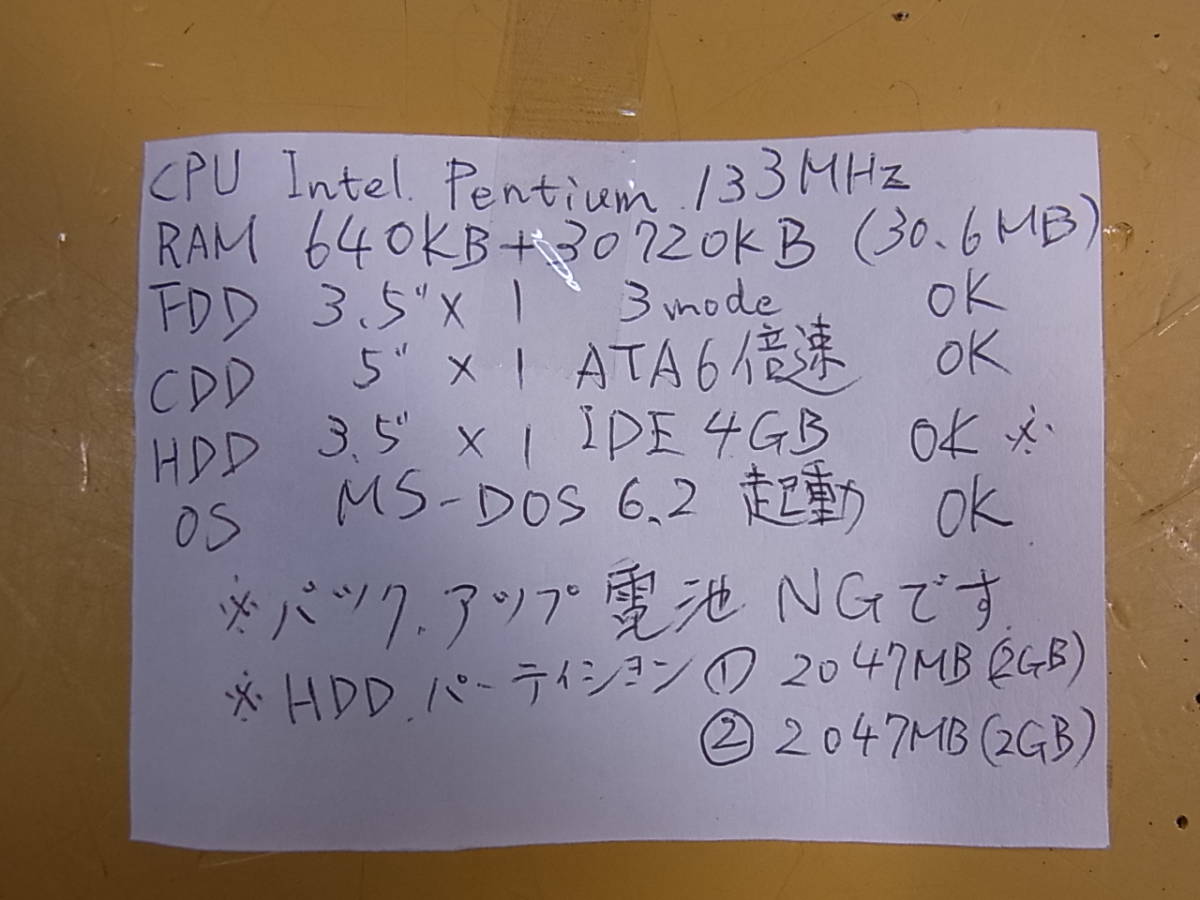 CPU Intel Pentium 133MHz
RAM 640KB+30720KB (30.6MB)
FDD 3.5"×1 3mode OK
CDD 5"×1 ATA6倍速 OK
HDD 3.5"×1 IDE 4GB OK※
OS MS-DOS 6.2 起動 OK
※バックアップ電池 NGです
※HDDパーティション① 2047MB(2GB)
② 2047MB(2GB)